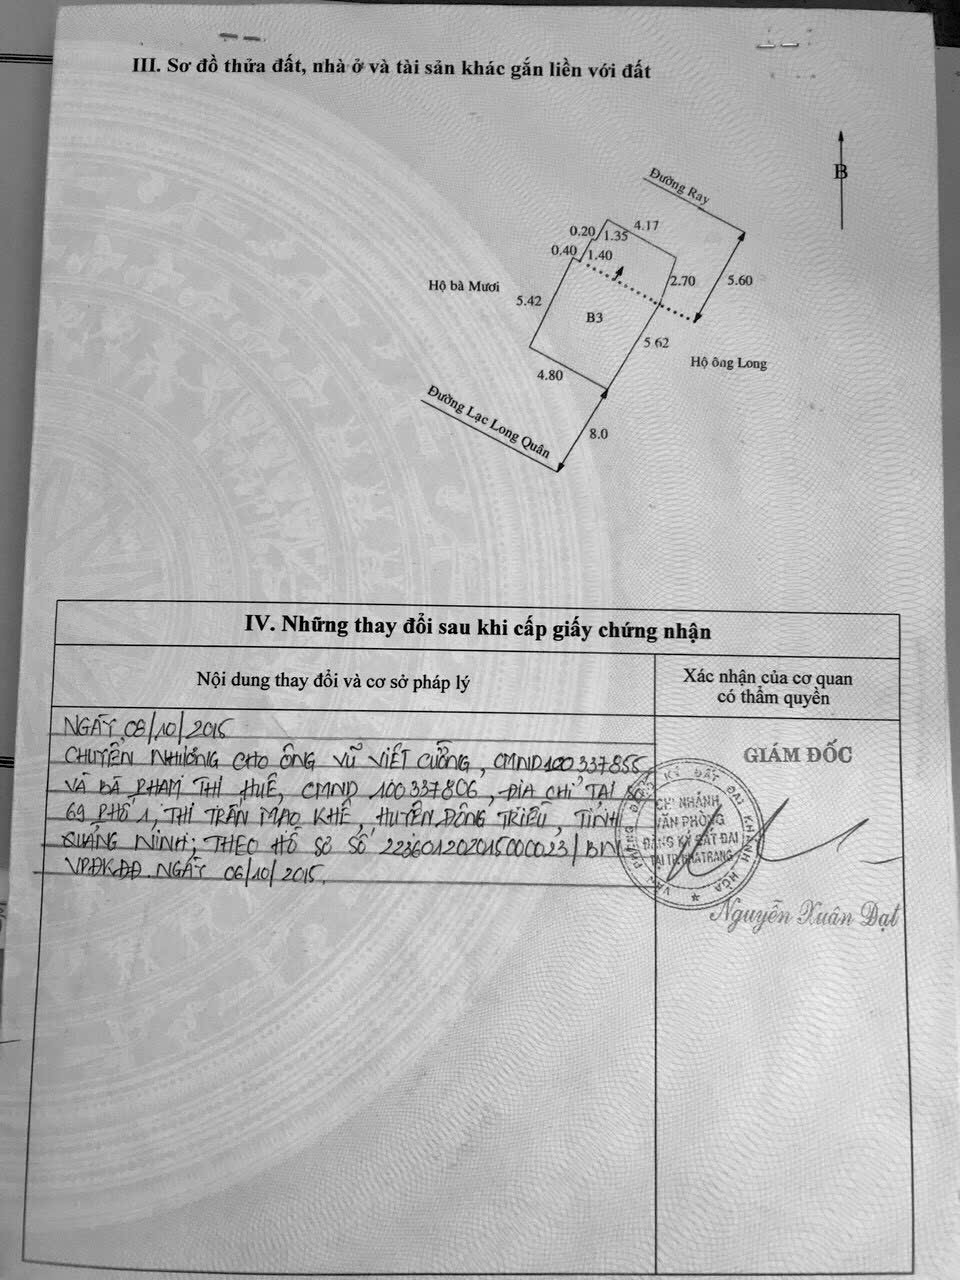 III. Sơ đồ thửa đất, nhà ở và tài sản khác gắn liền với đất
B
Đường Ray
4.17
0.20
1.35
0.40
1.40
2.70
5.60
Hộ bà Mươi
5.42
B3
5.62
Hộ ông Long
4.80
Đường Lạc Long Quân
8.0
IV. Những thay đổi sau khi cấp giấy chứng nhận
Nội dung thay đổi và cơ sở pháp lý
Xác nhận của cơ quan
có thẩm quyền
NGÀY 08/10/2015
CHUYỂN NHƯỢNG CHO ÔNG VŨ VIẾT CƯỜNG, CMND 100337855
VÀ BÀ PHẠM THỊ HUÊ, CMND 100337806, ĐỊA CHỈ TẠI SỐ
69 PHỐ 1, THỊ TRẤN MẠO KHÊ, HUYỆN ĐÔNG TRIỀU, TỈNH
QUẢNG NINH; THEO HỒ SƠ SỐ 223601202015000023/BN
VPĐKĐĐ. NGÀY 06/10/2015.
GIÁM ĐỐC
VĂN PHÒNG ĐĂNG KÝ ĐẤT ĐAI KHÁNH HÒA
CHI NHÁNH
VĂN PHÒNG
ĐĂNG KÝ ĐẤT ĐAI
TẠI TP. NHA TRANG
Nguyễn Xuân Đạt